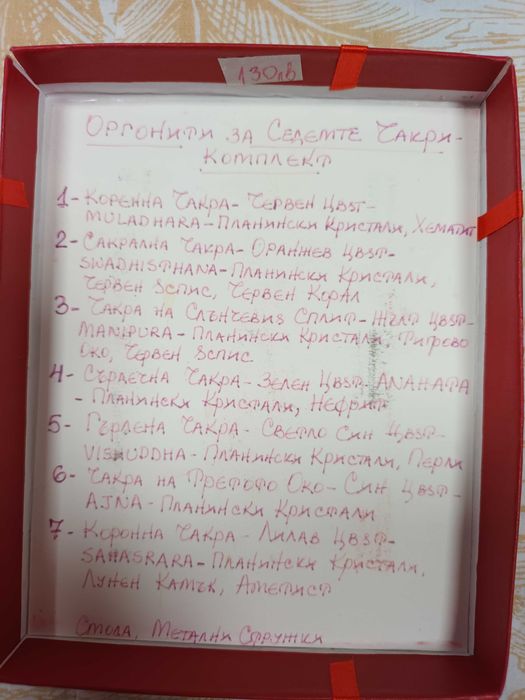 130лв
Оргонити за Седемте Чакри-
Комплект
1- Коренна Чакра- Червен Цвят-
MULADHARA- Планински Кристали, Хематит
2- Сакрална Чакра- Оранжев Цвят-
SWADHISTHANA- Планински Кристали,
Червен Яспис, Червен Корал
3- Чакра на Слънчевия Сплит- Жълт Цвят-
MANIPURA- Планински Кристали, Тигрово
Око, Червен Яспис
4- Сърдечна Чакра- Зелен Цвят- ANAHATA
- Планински Кристали, Нефрит
5- Гърлена Чакра- Светло Син Цвят-
VISHUDDHA- Планински Кристали, Перли
6- Чакра на Третото Око- Син Цвят-
AJNA- Планински Кристали
7- Коронна Чакра- Лилав Цвят-
SAHASRARA- Планински Кристали,
Лунен Камък, Аметист
Смола, Метални Стружки